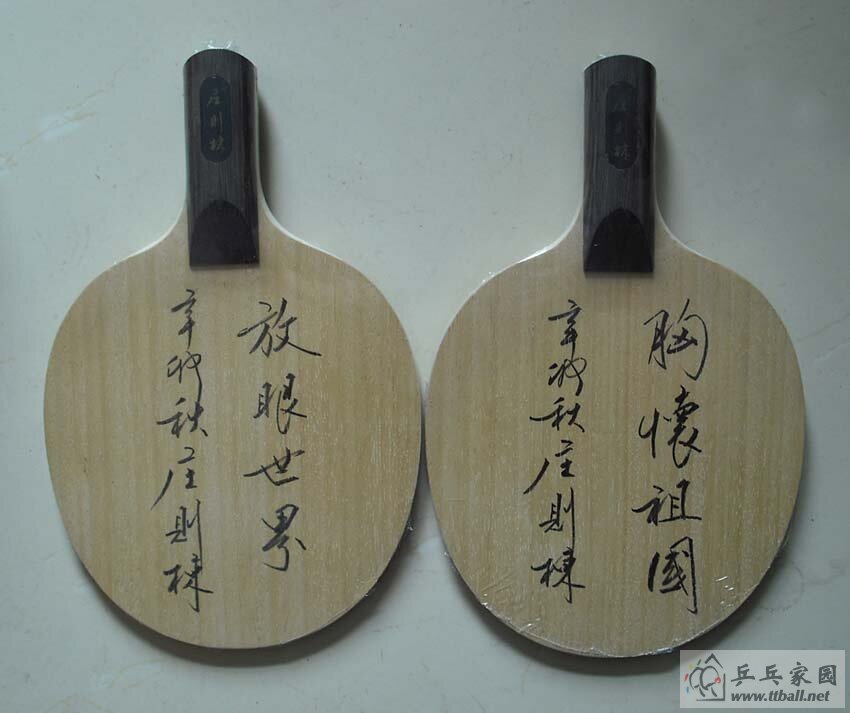 庄则栋
放眼世界
辛卯秋庄则栋
庄则栋
胸懷祖國
辛卯秋庄则栋
乒乓家园
www.ttball.net